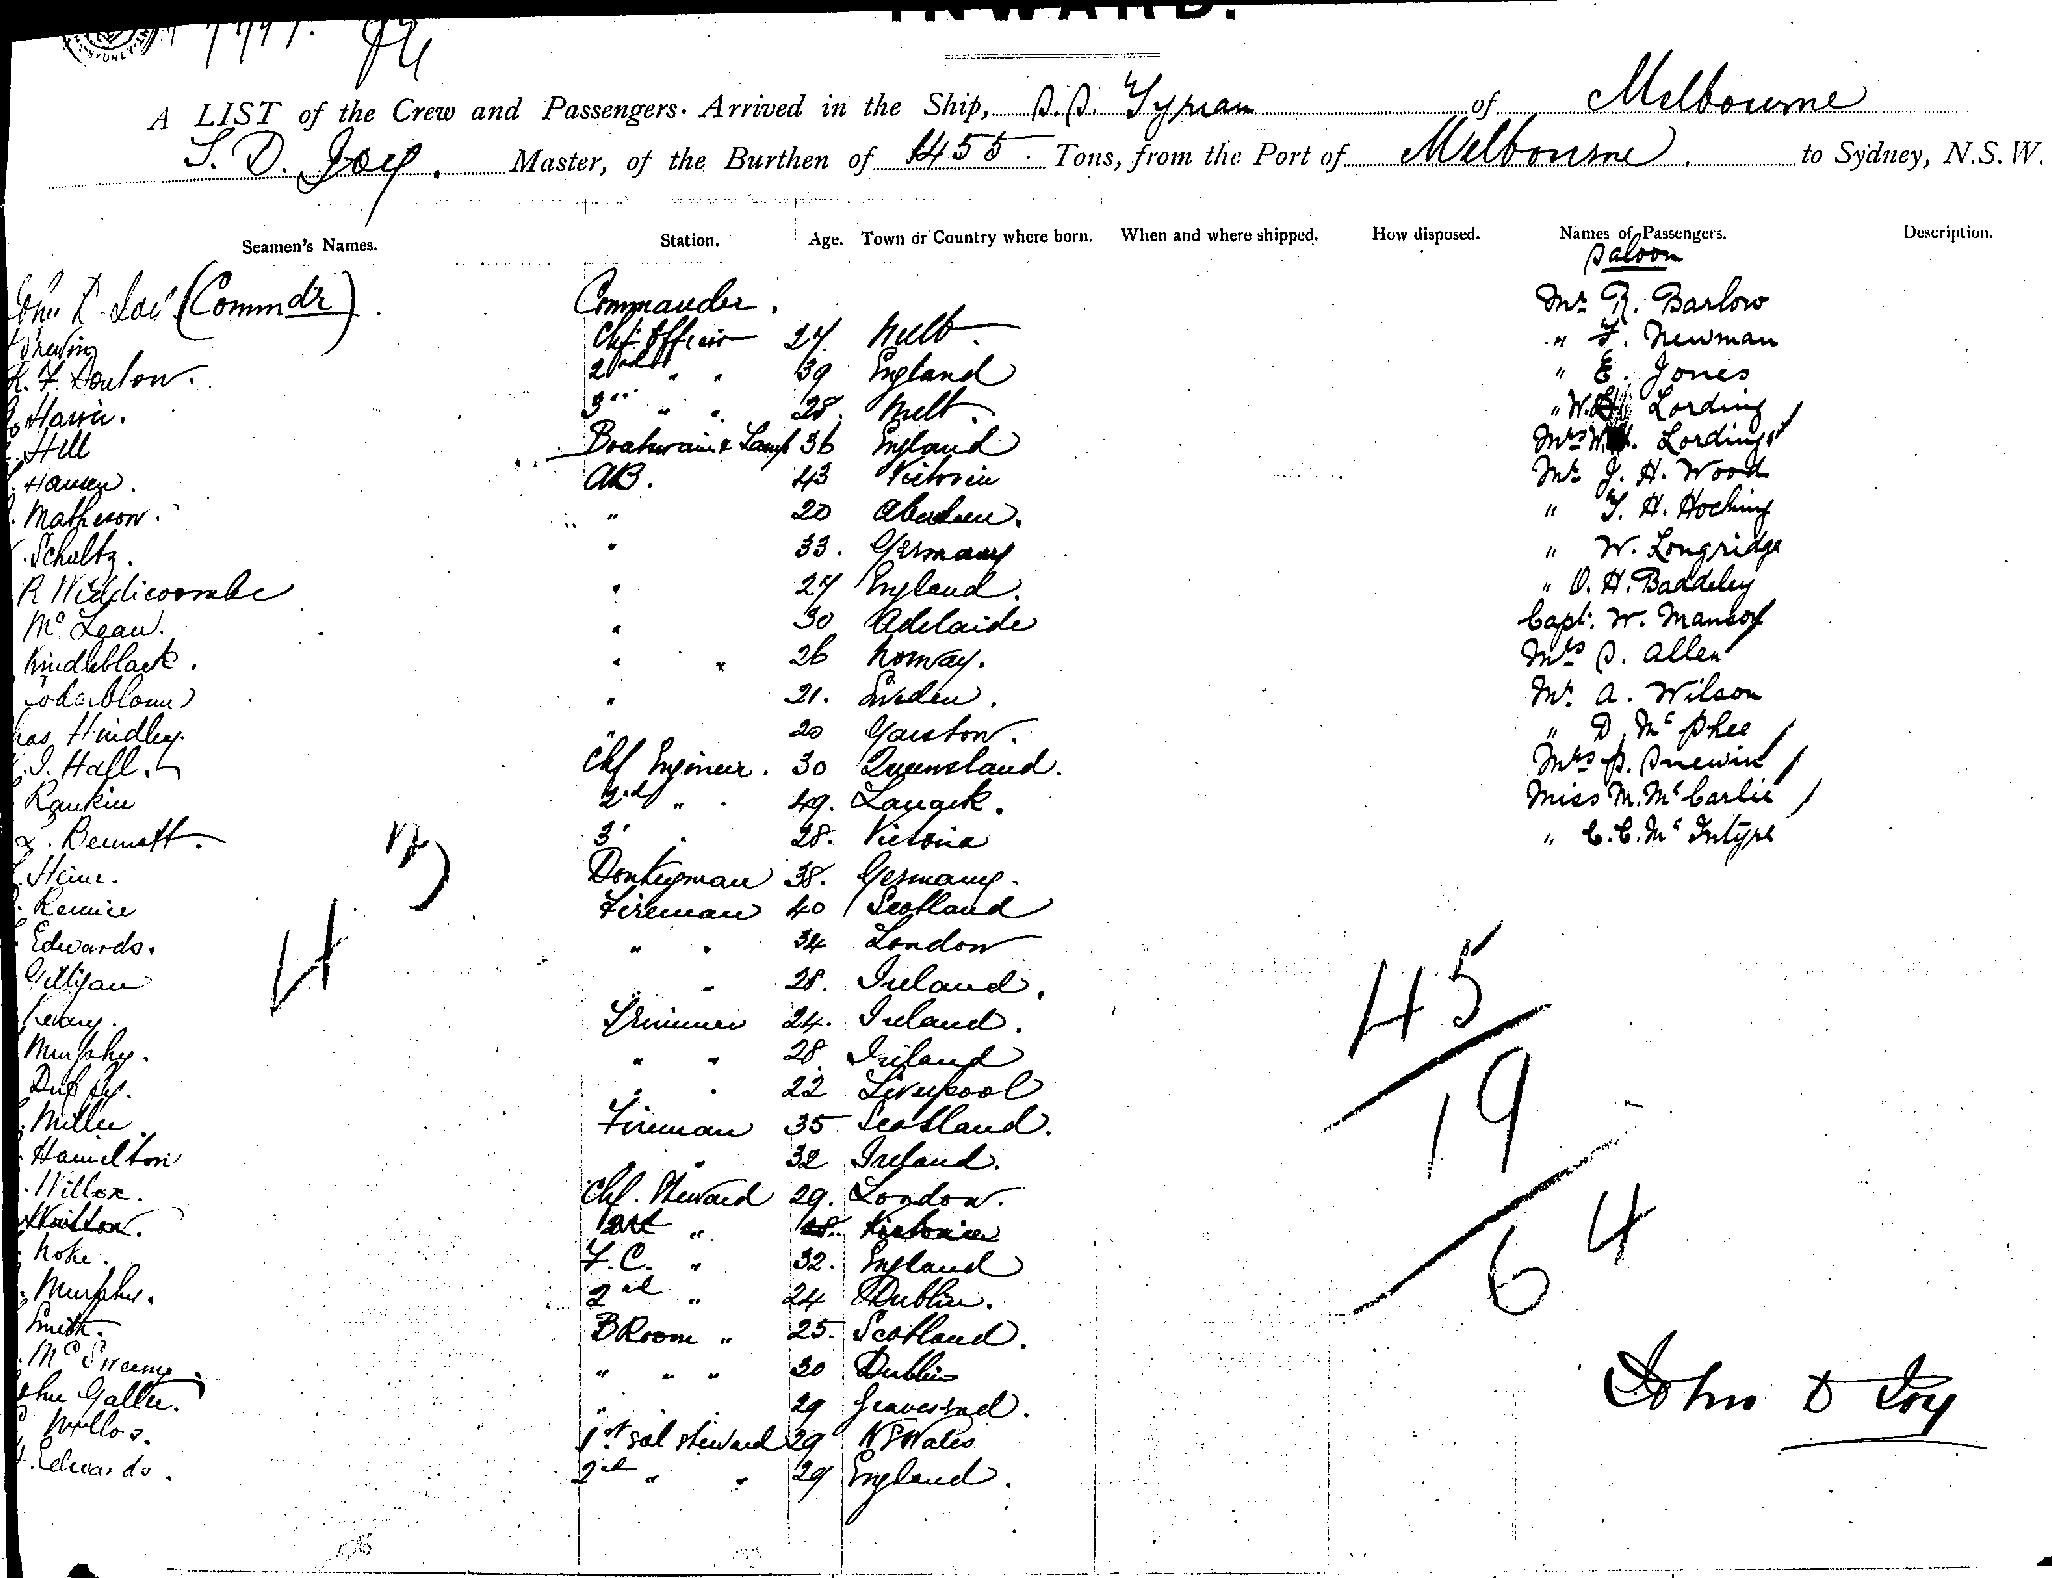 INWARD.
A LIST of the Crew and Passengers Arrived in the Ship, S.S. Tyrian of Melbourne
J. D. Joy. Master, of the Burthen of 1455 Tons, from the Port of Melbourne. to Sydney, N.S.W.
Seamen's Names. Station. Age. Town or Country where born. When and where shipped. How disposed. Names of Passengers. Description.
Saloon
John D. Joy (Commdr) Commander. Mr R. Barlow
Chf Officer 27 Melb. " F. Newman
2nd " " 39 England " E. Jones
Harris. 3rd " " 28. Melb. " W. Lording
Hill Boatswain & Lamps 36 England Mrs W. Lording
Hansen. AB. 43 Victoria Mr J. H. Wood
Matheson. " 20 Aberdeen. " T. H. Hocking
Schultz. " 33. Germany " W. Longridge
R Widdicombe " 27 England. " O. H. Baddeley
McLean. " 30 Adelaide Capt. W. Manson
" " 26 Norway. Mrs S. Allen
" 21. Sweden. Mr A. Wilson
Hindley. " 20 Garston. " D. McPhee
J. Hall. Chf Engineer. 30 Queensland. Mrs S. Snewin
Rankin 2nd " 49. Lanark. Miss M. McCarlie
Bennett. 3 28. Victoria " C. C. McIntyre
Heine. Donkeyman 38. Germany.
Rennie Fireman 40 Scotland
Edwards. " " 34 London
Gilligan " 28. Ireland.
Trimmer 24. Ireland.
Murphy. " " 28. Ireland
Duffy. " " 22 Liverpool
Miller. Fireman 35 Scotland.
Hamilton " 32 Ireland.
Willox. Chf. Steward 29. London.
" 28. Victoria
Noke. F.C. " 32. England
Murphy. 2nd " 24 Dublin.
Smith. B Room " 25. Scotland.
McSweeny. " " " 30 Dublin
John Galler. " 29 Gravesend.
1st Sal Steward 29 N S Wales
Edwards. 2nd " " 29 England.
43
45
19
64
John D Joy